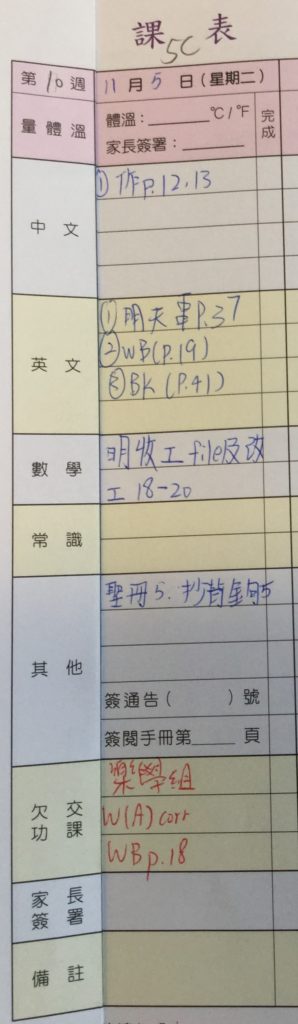 課表
5C
第10週 11月5日(星期二)
量體溫 體溫:________°C/°F 完成
家長簽署:________
中文 ①作p.12,13
英文 ①明天車P.37
②WB(P.19)
③BK(P.41)
數學 明收工file及改
工18-20
常識
其他 聖冊5.抄背金句5
簽通告( )號
簽閱手冊第____頁
欠交功課 樂學組
W(A) corr
WB p.18
家長簽署
備註